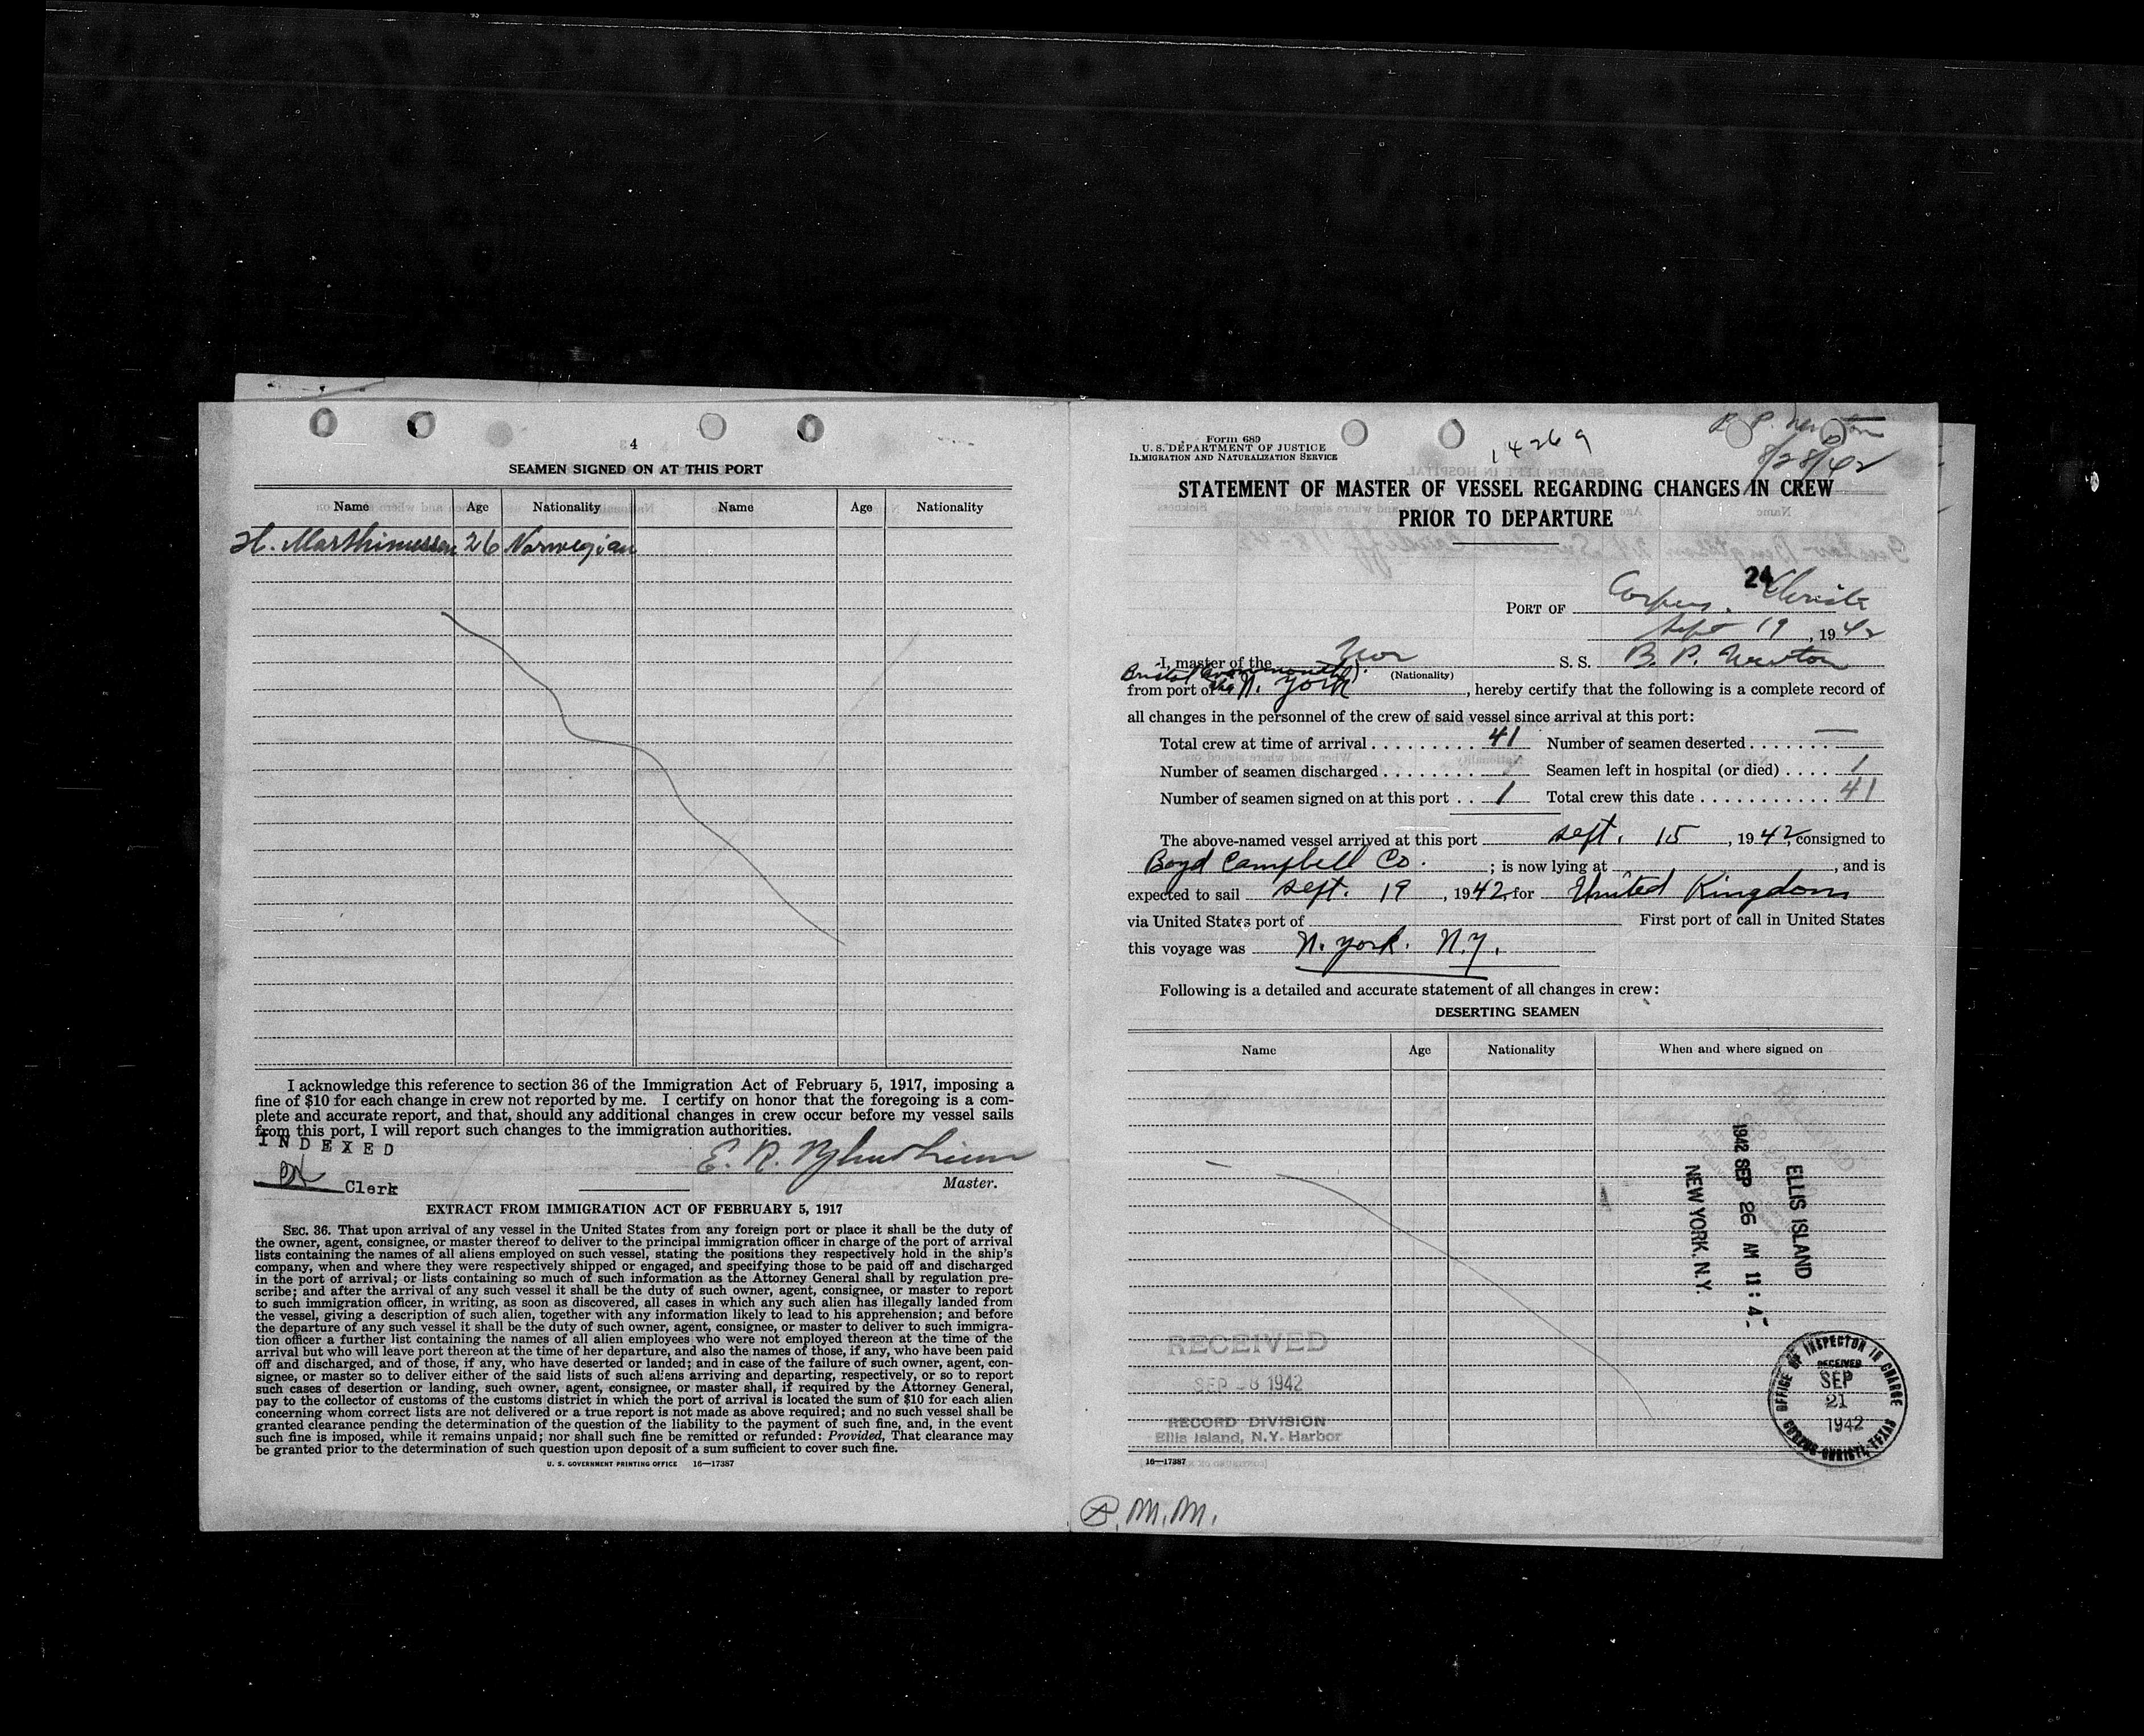 4
SEAMEN SIGNED ON AT THIS PORT
Name Age Nationality Name Age Nationality
H. Marthinussen 26 Norwegian
I acknowledge this reference to section 36 of the Immigration Act of February 5, 1917, imposing a
fine of $10 for each change in crew not reported by me. I certify on honor that the foregoing is a com-
plete and accurate report, and that, should any additional changes in crew occur before my vessel sails
from this port, I will report such changes to the immigration authorities.
INDEXED
E. R.
Clerk
Master.
EXTRACT FROM IMMIGRATION ACT OF FEBRUARY 5, 1917
SEC. 36. That upon arrival of any vessel in the United States from any foreign port or place it shall be the duty of
the owner, agent, consignee, or master thereof to deliver to the principal immigration officer in charge of the port of arrival
lists containing the names of all aliens employed on such vessel, stating the positions they respectively hold in the ship's
company, when and where they were respectively shipped or engaged, and specifying those to be paid off and discharged
in the port of arrival; or lists containing so much of such information as the Attorney General shall by regulation pre-
scribe; and after the arrival of any such vessel it shall be the duty of such owner, agent, consignee, or master to report
to such immigration officer, in writing, as soon as discovered, all cases in which any such alien has illegally landed from
the vessel, giving a description of such alien, together with any information likely to lead to his apprehension; and before
the departure of any such vessel it shall be the duty of such owner, agent, consignee, or master to deliver to such immigra-
tion officer a further list containing the names of all alien employees who were not employed thereon at the time of the
arrival but who will leave port thereon at the time of her departure, and also the names of those, if any, who have been paid
off and discharged, and of those, if any, who have deserted or landed; and in case of the failure of such owner, agent, con-
signee, or master so to deliver either of the said lists of such aliens arriving and departing, respectively, or so to report
such cases of desertion or landing, such owner, agent, consignee, or master shall, if required by the Attorney General,
pay to the collector of customs of the customs district in which the port of arrival is located the sum of $10 for each alien
concerning whom correct lists are not delivered or a true report is not made as above required; and no such vessel shall be
granted clearance pending the determination of the question of the liability to the payment of such fine, and, in the event
such fine is imposed, while it remains unpaid; nor shall such fine be remitted or refunded: Provided, That clearance may
be granted prior to the determination of such question upon deposit of a sum sufficient to cover such fine.
U. S. GOVERNMENT PRINTING OFFICE 16—17387
Form 689
U. S. DEPARTMENT OF JUSTICE
IMMIGRATION AND NATURALIZATION SERVICE
14269
B. P. Newton
8/28/42
STATEMENT OF MASTER OF VESSEL REGARDING CHANGES IN CREW
PRIOR TO DEPARTURE
24
PORT OF Corpus Christi
Sept 19, 1942
I, master of the Nor S. S. B. P. Newton
(Nationality)
Bristol (Avonmouth)
from port of via N. York, hereby certify that the following is a complete record of
all changes in the personnel of the crew of said vessel since arrival at this port:
Total crew at time of arrival 41 Number of seamen deserted —
Number of seamen discharged Seamen left in hospital (or died) 1
Number of seamen signed on at this port 1 Total crew this date 41
The above-named vessel arrived at this port Sept. 15, 1942, consigned to
Boyd Campbell Co.; is now lying at , and is
expected to sail Sept. 19, 1942, for United Kingdom
via United States port of First port of call in United States
this voyage was N. York. N.Y.
Following is a detailed and accurate statement of all changes in crew:
DESERTING SEAMEN
Name Age Nationality When and where signed on
ELLIS ISLAND
1942 SEP 26 AM 11:4
NEW YORK, N.Y.
RECEIVED
SEP 1942
RECORD DIVISION
Ellis Island, N.Y. Harbor
OFFICE OF INSPECTOR IN CHARGE
RECEIVED
SEP
21
1942
CORPUS CHRISTI, TEXAS
16—17387
M.M.